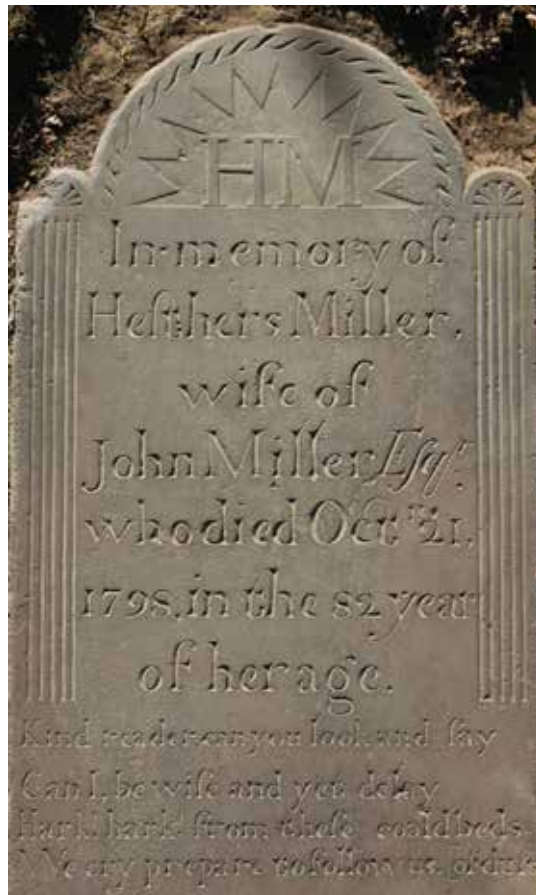 HM
In memory of
Heſthers Miller,
wife of
John Miller Eſqr.
who died Octr. 21,
1798, in the 82 year
of her age.
Kind reader can you look and ſay
Can I, be wiſe and yet delay
Hark! hark! from theſe coald beds
We cry prepare to follow us